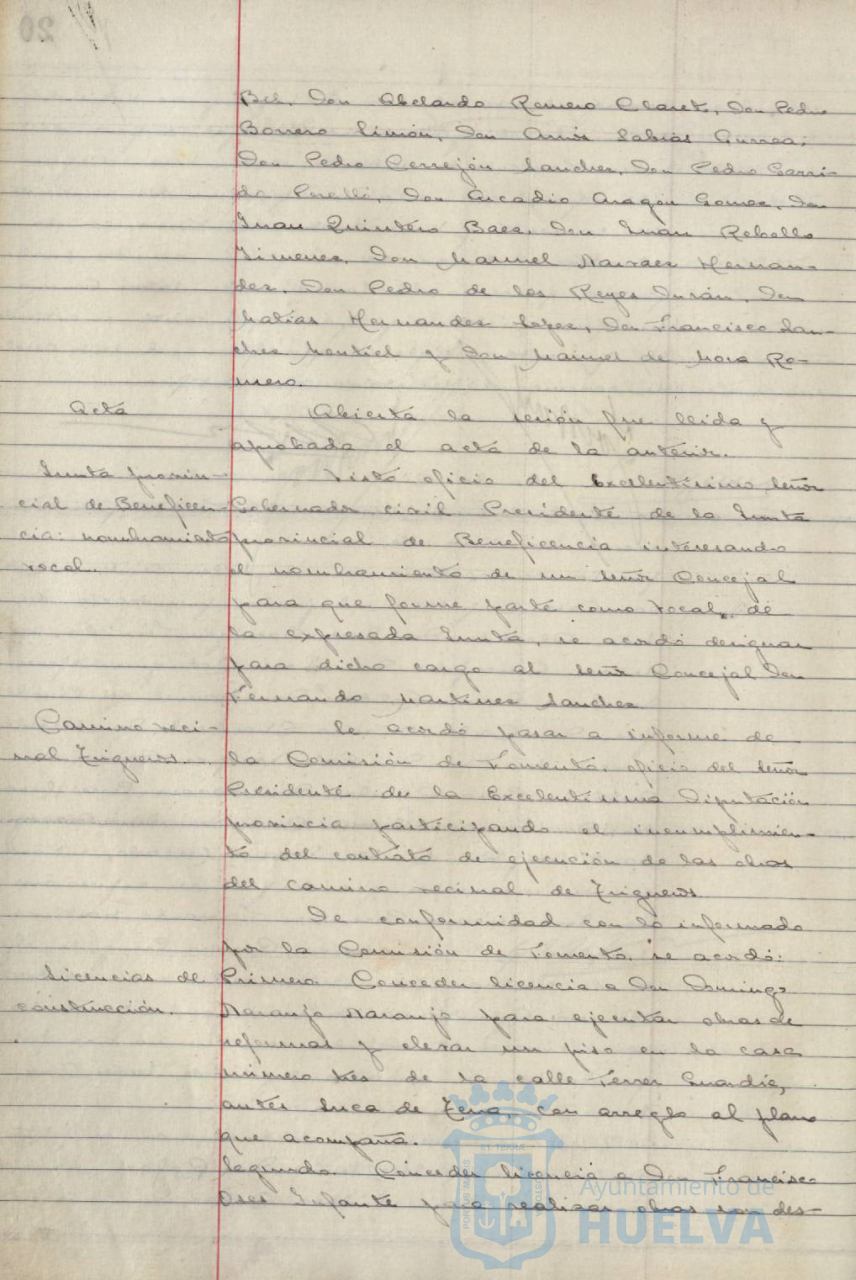 Bel, Don Abelardo Romero Claret, Don Pedro
Borrero Limón, Don Amós Sabrás Gurrea,
Don Pedro Cerrejón Sanchez, Don Pedro Garri-
do Perelló, Don Arcadio Aragón Gomez, Don
Juan Quintero Baez, Don Juan Rebollo
Jimenez, Don Manuel Narvaez Hernan-
dez, Don Pedro de los Reyes Durán, Don
Matías Hernandez Lopez, Don Francisco San-
chez Montiel y Don Manuel de Mora Ro-
mero.
Acta
Abierta la sesión fue leida y
aprobada el acta de la anterior.
Junta provin-
cial de Beneficen-
cia: nombramiento
vocal.
Visto oficio del Excelentísimo Señor
Gobernador civil Presidente de la Junta
provincial de Beneficencia interesando
el nombramiento de un Señor Concejal
para que forme parte como vocal, de
la expresada Junta, se acordó designar
para dicho cargo al Señor Concejal Don
Fernando Martinez Sanchez
Camino veci-
nal Trigueros.
Se acordó pasar a informe de
la Comisión de Fomento, oficio del Señor
Presidente de la Excelentísima Diputación
provincia participando el incumplimien-
to del contrato de ejecución de las obras
del camino vecinal de Trigueros
De conformidad con lo informado
por la Comisión de Fomento, se acordó:
Licencias de
construcción.
Primero. Conceder licencia a Don Domingo
Naranjo Naranjo para ejecutar obras de
reformas y elevar un piso en la casa
número tres de la calle Ferrer Guardia,
antes Luca de Tena, con arreglo al plano
que acompaña.
Segundo. Conceder licencia a Don Francisco
Oses Infante para realizar obras son des-
Ayuntamiento de
HUELVA